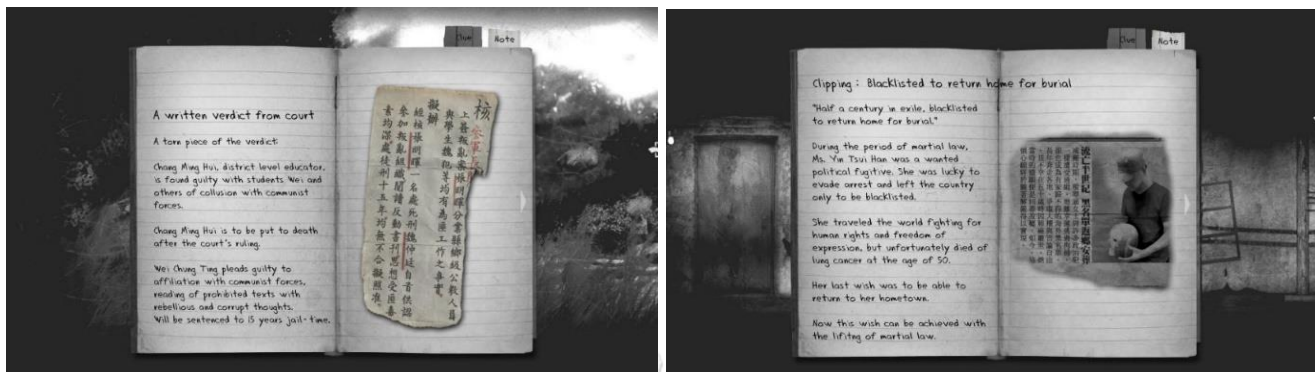 Clue
Note
A written verdict from court
A torn piece of the verdict:
Chang Ming Hui, district level educator,
is found guilty with students Wei and
others of collusion with communist
forces.
Chang Ming Hui is to be put to death
after the court's ruling.
Wei Chung Ting pleads guilty to
affiliation with communist forces,
reading of prohibited texts with
rebellious and corrupt thoughts.
Will be sentenced to 15 years jail-time.
核
張明暉分業縣鄉級公教人員
與學生魏犯等均有為匪工作之事實
擬辦
經核張明暉一名處死刑魏仲廷自首供認
參加叛亂組織閱讀反動書刊思想受匪毒
害均深處徒刑十五年均無不合擬照准
Clue
Note
Clipping : Blacklisted to return home for burial
"Half a century in exile, blacklisted
to return home for burial."
During the period of martial law,
Ms. Yin Tsui Han was a wanted
political fugitive. She was lucky to
evade arrest and left the country
only to be blacklisted.
She traveled the world fighting for
human rights and freedom of
expression, but unfortunately died of
lung cancer at the age of 50.
Her last wish was to be able to
return to her hometown.
Now this wish can be achieved with
the lifitng of martial law.
流亡半世紀 黑名單返鄉安葬